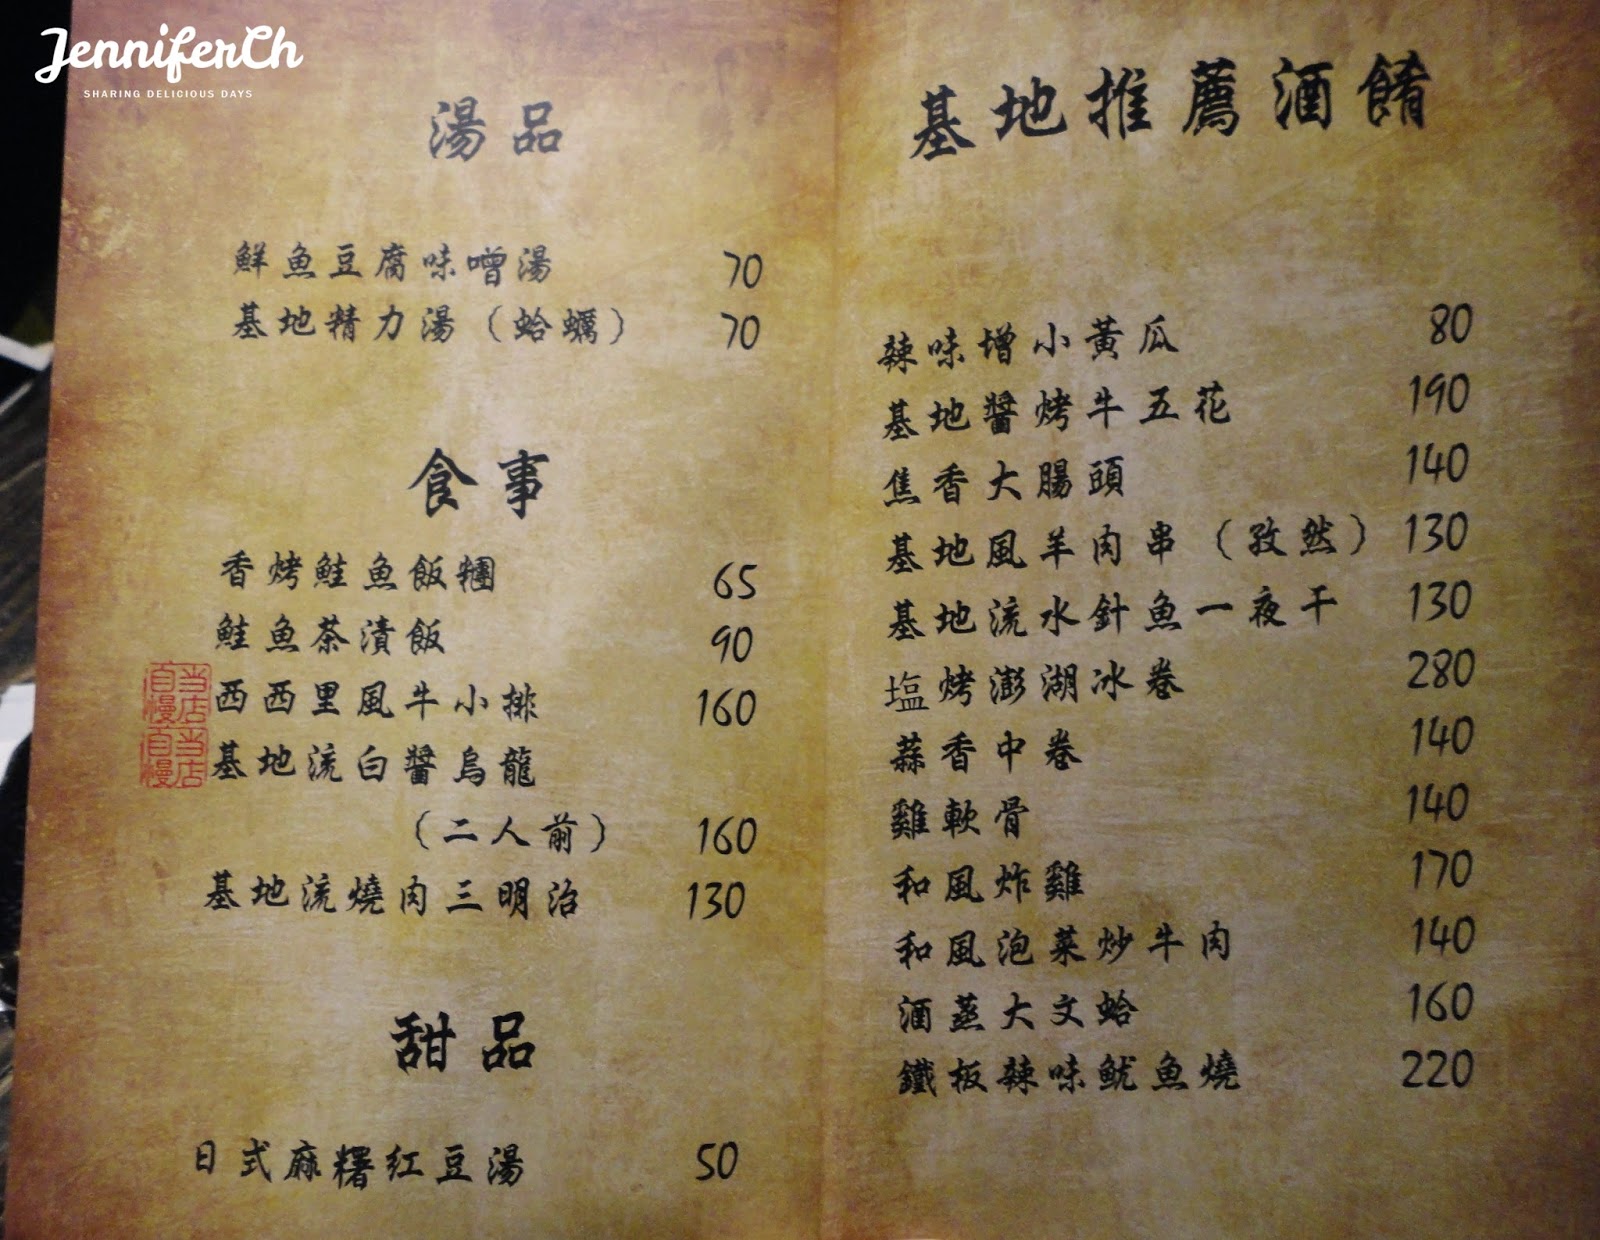 JenniferCh
SHARING DELICIOUS DAYS
湯品
鮮魚豆腐味噌湯 70
基地精力湯（蛤蠣） 70
食事
香烤鮭魚飯糰 65
鮭魚茶漬飯 90
当店自慢
西西里風牛小排 160
当店自慢
基地流白醬烏龍
（二人前） 160
基地流燒肉三明治 130
甜品
日式麻糬紅豆湯 50
基地推薦酒餚
辣味增小黃瓜 80
基地醬烤牛五花 190
焦香大腸頭 140
基地風羊肉串（孜然） 130
基地流水針魚一夜干 130
塩烤澎湖冰卷 280
蒜香中卷 140
雞軟骨 140
和風炸雞 170
和風泡菜炒牛肉 140
酒蒸大文蛤 160
鐵板辣味魷魚燒 220